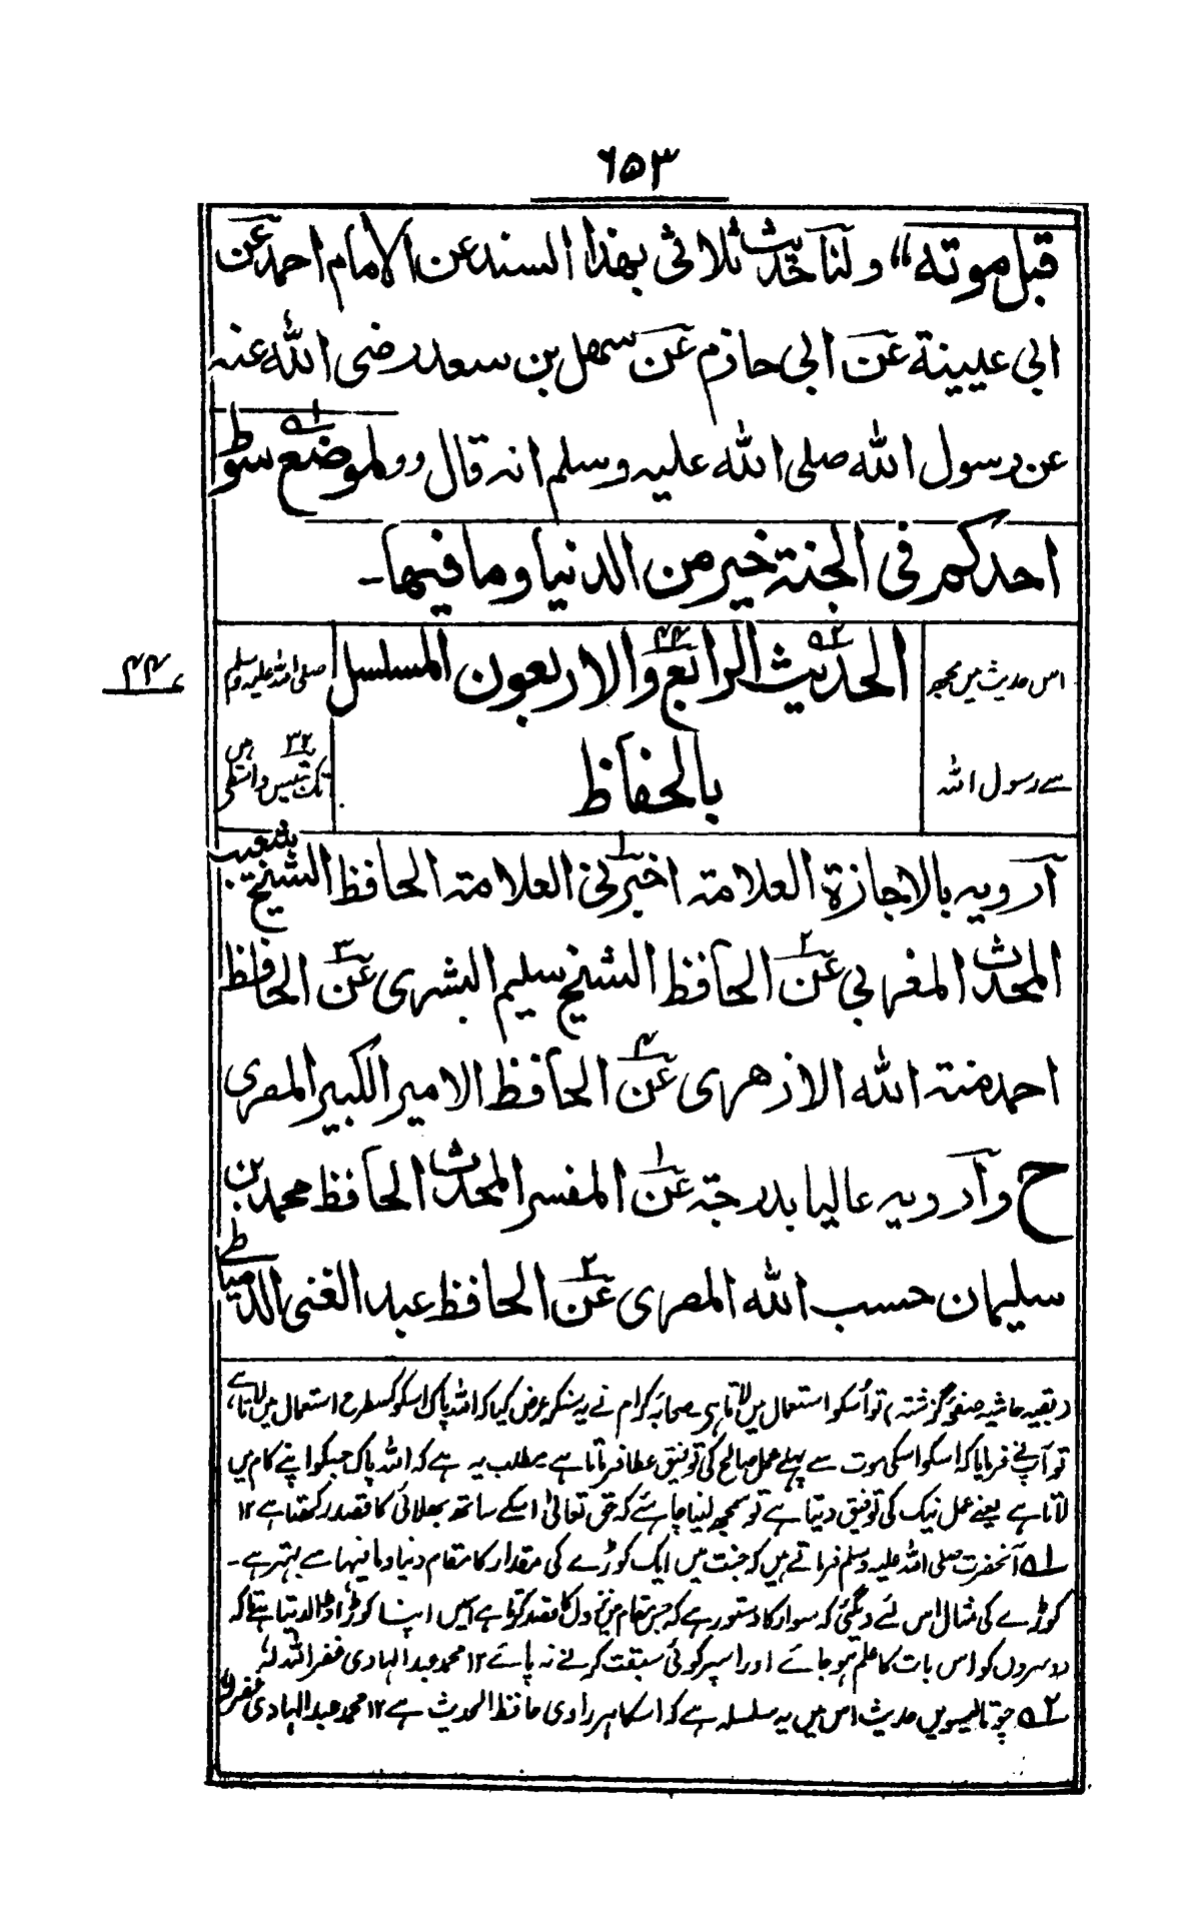 ۶۵۳
قبل موته“ ولنا حديث ثلاثى بهذا السند عن الامام احمد عن
ابى عيينة عن ابى حازم عن سهل بن سعد رضى الله عنه
عن رسول الله صلى الله عليه وسلم انه قال وو لموضع سوط
احدكم فى الجنة خير من الدنيا وما فيها۔
۴۴
اس حدیث میں مجھ
سے رسول اللہ
الحديث الرابع والاربعون المسلسل
بالحفاظ
صلی اللہ علیہ وسلم
تک تیئیس واسطی ہیں
ارويه بالاجازة العلامة اخبرنى العلامة الحافظ الشيخ شعيب
المحدث المغربى عن الحافظ الشيخ سليم البشرى عن الحافظ
احمد منة الله الازهرى عن الحافظ الامير الكبير المصرى
ح وارويه عاليا بدرجة عن المفسر المحدث الحافظ محمد بن
سليمان حسب الله المصرى عن الحافظ عبد الغنى الدمياطى
(بقیہ حاشیہ صفحہ گزشتہ) تو اُسکو استعمال میں لاتا ہی۔ صحابہ کرام نے یہ سنکو عرض کیا کہ اللہ پاک اسکو کسطرح استعمال میں لاتا ہے
تو آپ نے فرمایا کہ اسکو اسکی موت سے پہلے عمل صالح کی توفیق عطا فرماتا ہے مطلب یہ ہے کہ اللہ پاک جبکو اپنے کام میں
لاتا ہے یعنے عمل نیک کی توفیق دیتا ہے تو سمجھ لینا چاہئے کہ حق تعالیٰ اسکے ساتھ بھلائی کا قصد رکھتا ہے ۱۲
۱؎ آنحضرت صلی اللہ علیہ وسلم فرماتے ہیں کہ جنت میں ایک کوڑے کی مقدار کا مقام دنیا و ما فیہا سے بہتر ہے۔
کوڑے کی مثال اس لئے دیگئی کہ سوار کا دستور ہے کہ جس مقام میں نزول کا قصد کرتا ہے اسمیں اپنا کوڑا ڈالدیتا ہے تاکہ
دوسروں کو اس بات کا علم ہو جائے اور اسپر کوئی سبقت کرنے نہ پائے ۱۲ محمد عبد الہادی غفر اللہ لہٗ
۲؎ چوتالیسویں حدیث اس میں یہ سلسلہ ہے کہ اسکا ہر راوی حافظ الحدیث ہے ۱۲ محمد عبد الہادی غفرلہ